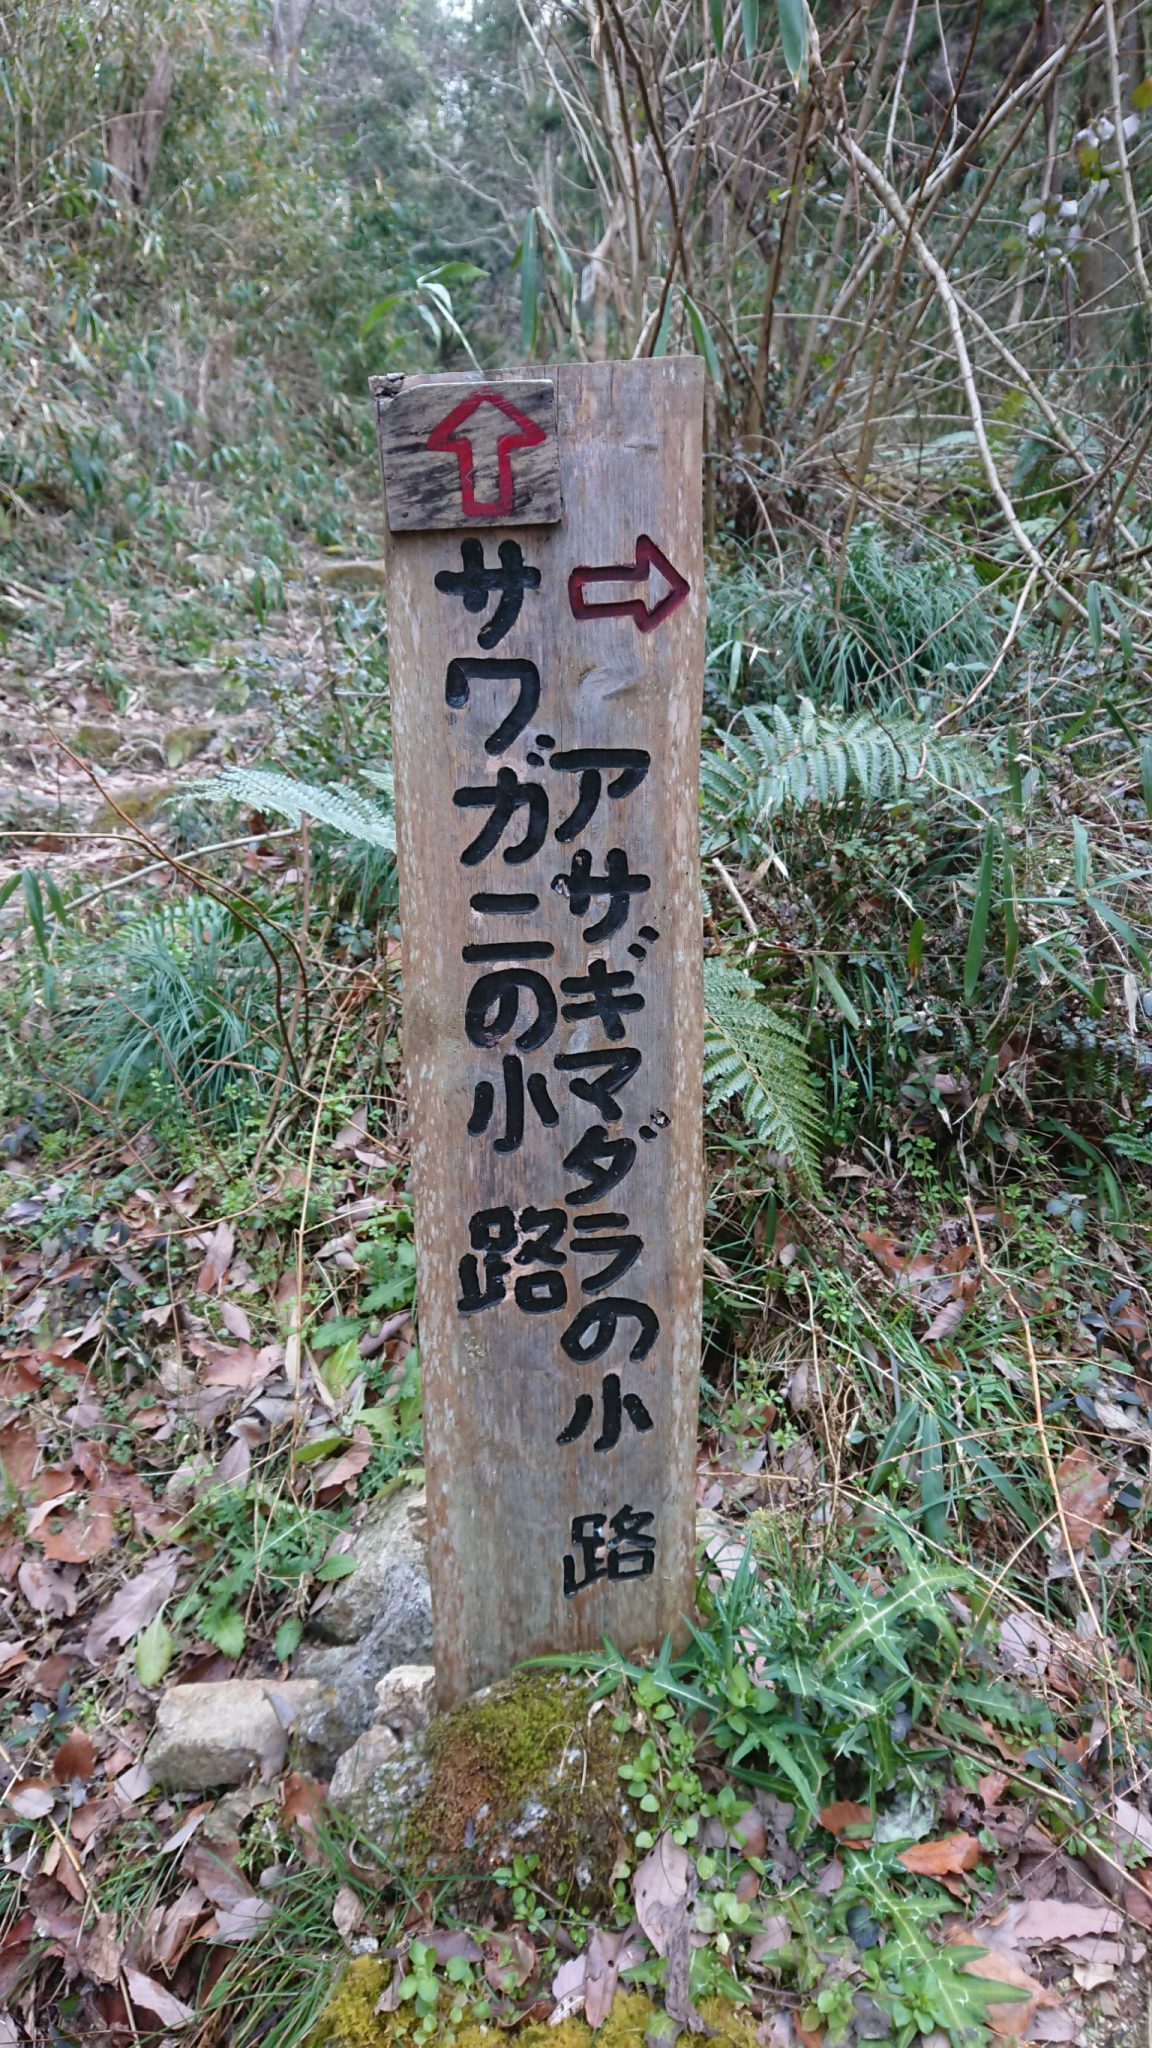 アサギマダラの小路
サワガニの小路